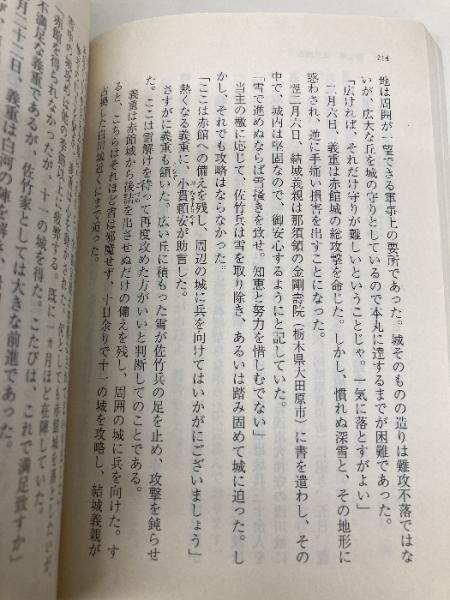 214
地は周囲が一望できる軍事上の要所であった。城そのものの造りは難攻不落ではな
いが、広大な丘を城の守りとしているので本丸に達するまでが困難であった。
「広ければ、それだけ守りが難しいということじゃ。一気に落とすがよい」
二月六日、義重は赤館城の総攻撃を命じた。しかし、慣れぬ深雪と、その地形に
惑わされ、逆に手痛い損害を出すことになった。
翌二月六日、結城義親は那須領の金剛壽院(栃木県大田原市)に書を遣わし、その
中で、城内は堅固なので、御安心するようにと記していた。
「雪で進めぬならば雪掻きを致せ。知恵と努力を惜しむでない」
当主の檄に応じて、佐竹兵は雪を取り除き、あるいは踏み固めて城に迫った。し
かし、それでも攻略はならなかった。
「ここは赤館への備えを残し、周辺の城に兵を向けてはいかがにございましょう」
熱くなる義重に、小貫頼安が助言した。
さすがに義重も頷いた。広い丘に積もった雪が佐竹兵の足を止め、攻撃を鈍らせ
た。ここは雪解けを待って再度攻めた方がいいと判断してのことである。
義重は赤館城から後詰を出させぬだけの備えを残し、周囲の城に兵を向けた。す
ると、こちらはそれほど雪は邪魔せず、十日余りで十一の城を攻略し、結城義親が
占拠した白川城近くにまで迫った。
既に一ヵ月ほど在陣していた。
赤館城を落としたいが、
こたびは、これで満足致すか」
「赤館を得られなかったが、
城を得た。
不満足な義重であるが、佐竹家としては大きな前進であった。
月二十二日、義重は白河の陣を解